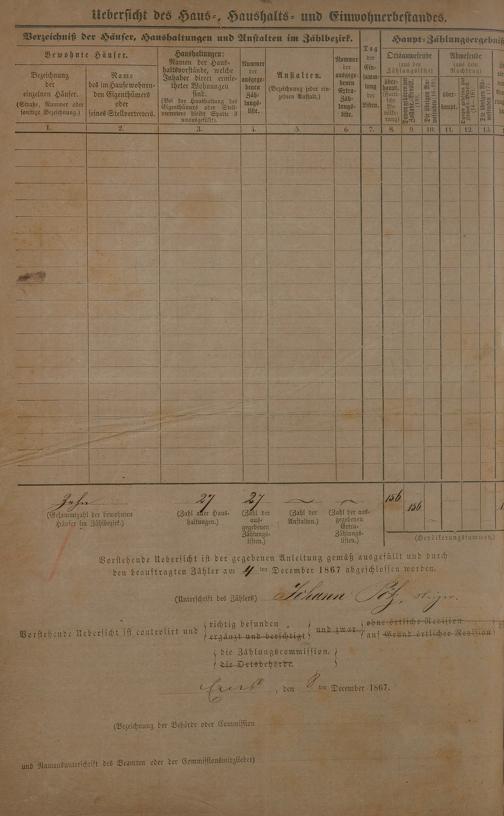 Uebersicht des Haus-, Haushalts- und Einwohnerbestandes.
Verzeichniß der Häuser, Haushaltungen und Anstalten im Zählbezirk.
Haupt-Zählungsergebniß
Bewohnte Häuser.
Bezeichnung der einzelnen Häuser. (Straße, Nummer oder sonstige Bezeichnung.)
Name des im Hause wohnenden Eigenthümers oder seines Stellvertreters.
Haushaltungen: Namen der Haushaltsvorstände, welche Inhaber direct ermietheter Wohnungen sind.
Nummer der ausgegebenen Zählungsliste.
Anstalten. (Bezeichnung jeder einzelnen Anstalt.)
Nummer der ausgegebenen Extra-Zählungsliste.
Tag der Einsammlung der Listen.
Ortsanwesende (aus der Zählungsliste)
Abwesende (aus dem Nachtrag)
1. 2. 3. 4. 5. 6. 7. 8. 9. 10. 11. 12. 13.
Zehn 27 27 — — 156 156
(Gesammtzahl der bewohnten Häuser im Zählbezirk.)
(Zahl aller Haushaltungen.)
(Zahl der ausgegebenen Zählungslisten.)
(Zahl der Anstalten.)
(Zahl der ausgegebenen Extra-Zählungslisten.)
(Bevölkerungssumme)
Vorstehende Uebersicht ist der gegebenen Anleitung gemäß ausgefüllt und durch
den beauftragten Zähler am 4 ten December 1867 abgeschlossen worden.
(Unterschrift des Zählers) Johann
Vorstehende Uebersicht ist controlirt und
richtig befunden
ergänzt und berichtigt
und zwar
ohne örtliche Revision
auf Grund örtlicher Revision
die Zählungscommission.
die Ortsbehörde.
, den 8 ten December 1867.
(Bezeichnung der Behörde oder Commission
und Namensunterschrift des Beamten oder der Commissionsmitglieder)